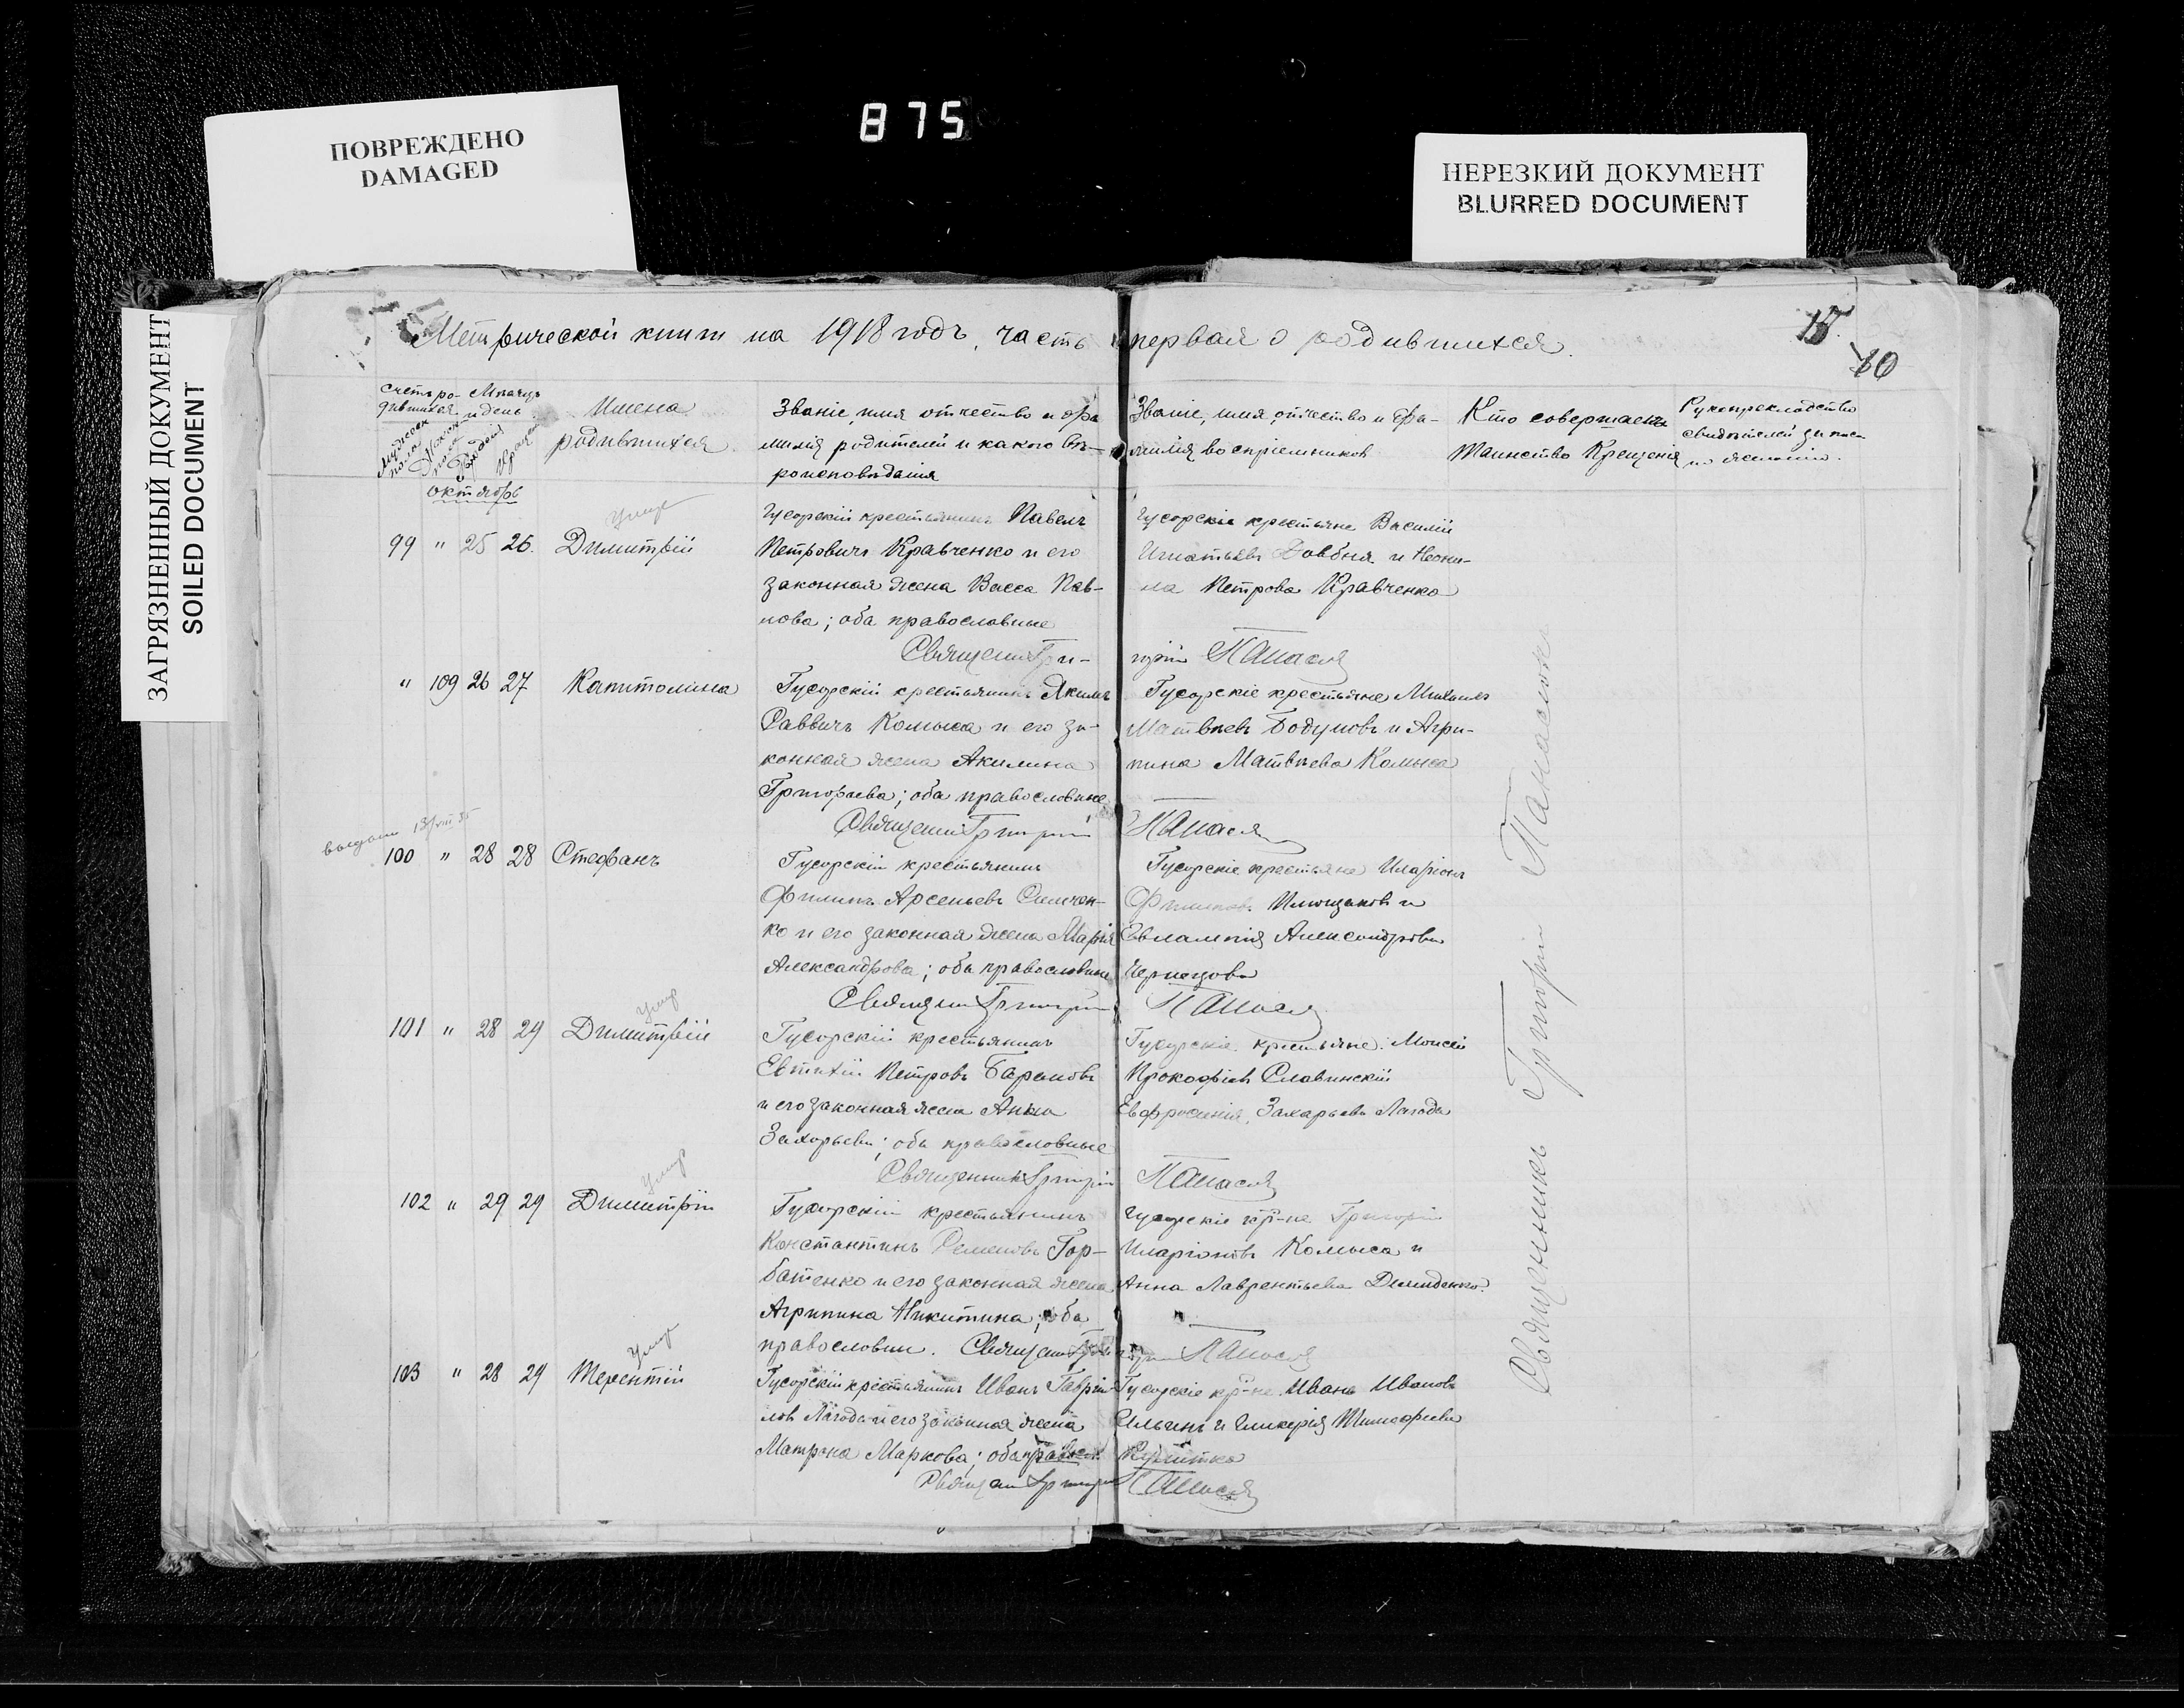 875
ПОВРЕЖДЕНО
DAMAGED
НЕРЕЗКИЙ ДОКУМЕНТ
BLURRED DOCUMENT
ЗАГРЯЗНЕННЫЙ ДОКУМЕНТ
SOILED DOCUMENT
Метрической книги на 1918 годъ, часть первая о родившихся.
15
10
Счетъ ро-
дившихся
Мѣсяцъ
и день
Имена
родившихся
Званіе, имя отчество и фа
милія родителей и какого вѣ-
роисповѣданія
Званіе, имя, отчество и фа-
милія воспріемниковъ
Кто совершалъ
Таинство Крещенія
Рукоприкладство
свидѣтелей записи
по желанію.
октябрь
умер
99 " 25 26. Димитрій
Гусарскій крестьянинъ Павелъ
Петровичъ Кравченко и его
законная жена Васса Пав-
лова; оба православные
Гусарскіе крестьяне Василій
Игнатьевъ Довбня и Неони-
ла Петрова Кравченко
Священникъ Гри-
горій Панасюк
" 109 26 27 Капитолина
Гусарскій крестьянинъ Якимъ
Саввичъ Комыса и его за-
конная жена Акилина
Григорьева; оба православные
Гусарскіе крестьяне Михаилъ
Матвѣевъ Бодуновъ и Агри-
пина Матвѣева Комыса
Священникъ Григорій Панасюк
выдан 13/VIII 35
100 " 28 28 Стефанъ
Гусарскій крестьянинъ
Филипъ Арсеньевъ Симчен-
ко и его законная жена Марія
Александрова; оба православные
Гусарскіе крестьяне Иларіонъ
Филиповъ и
Евлампія Александрова
Чернецова
Священникъ Григорій Панасюк
умер
101 " 28 29 Димитрій
Гусарскій крестьянинъ
Евтихій Петровъ Барановъ
и его законная жена Анна
Захарьева; оба православные
Гусарскіе крестьяне: Моисей
Прокофіевъ Славинскій
Евфросинія Захарьева Лагода
Священникъ Григорій Панасюк
умер
102 " 29 29 Димитрій
Гусарскій крестьянинъ
Константинъ Семеновъ Гор-
батенко и его законная жена
Агрипина Никитина; оба
православны.
Гусарскіе кр-не Григорій
Иларіоновъ Комыса и
Анна Лаврентьева Демиденко.
Священникъ Григорій Панасюк
умер
103 " 28 29 Терентій
Гусарскій крестьянинъ Иванъ Гаврі-
ловъ Лагода и его законная жена
Матрона Маркова; оба правосл.
Гусарскіе кр-не Иванъ Ивановъ
Ильинъ и Гликерія Тимофеева
Священникъ Григорій Панасюк
Священникъ Григорій Панасюк